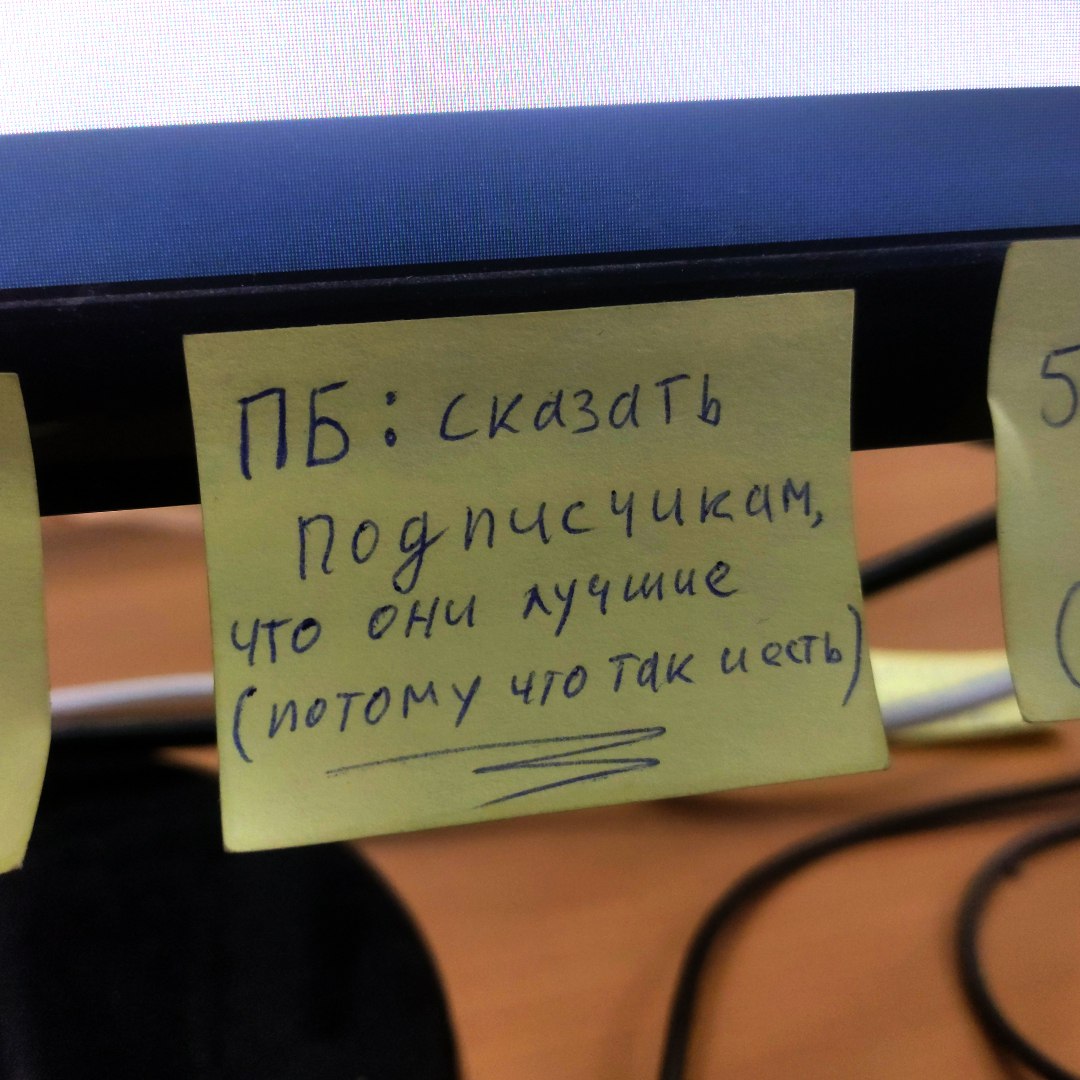 ПБ: сказать
подписчикам,
что они лучшие
(потому что так и есть)
5
(